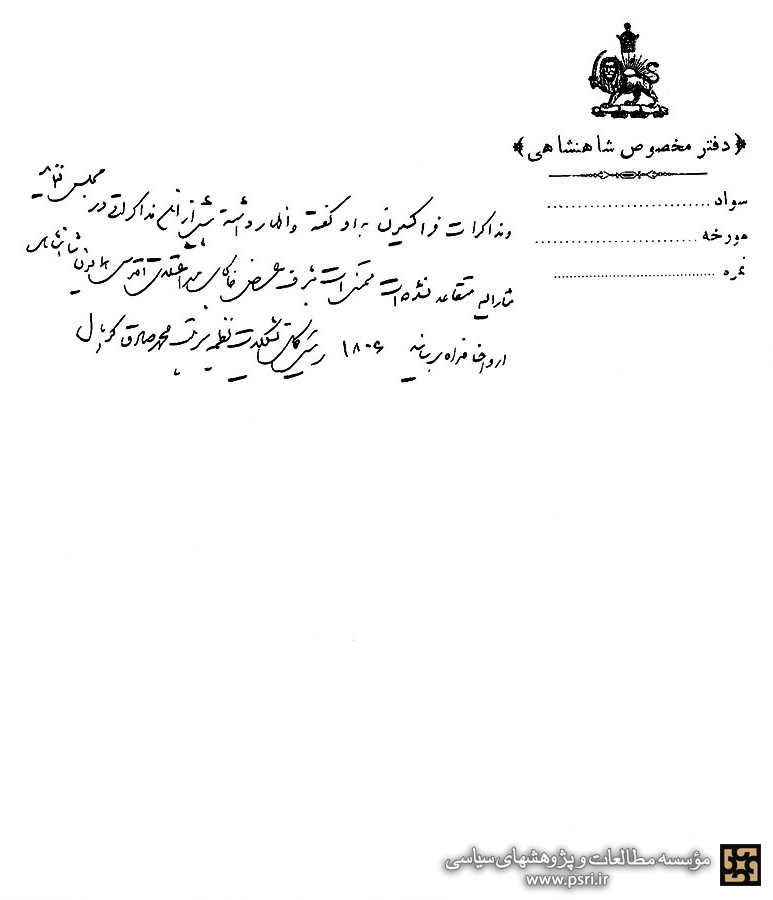 ﴿دفتر مخصوص شاهنشاهی﴾
سواد
مورخه
نمره
ومذاکرات فراکسیون به او گفته و اظهار داشته پیش از این مذاکراتی در مجلس
مشارالیه متقاعد نشده است متمنی است بشرف عرض خاکپای اقدس همایون شاهنشاهی
ارواحنا فداه برسانید ۱۸۰۶ رئیس کل تشکیلات نظمیه سرتیپ محمد صادق کوپال
مؤسسه مطالعات و پژوهشهای سیاسی
www.psri.ir